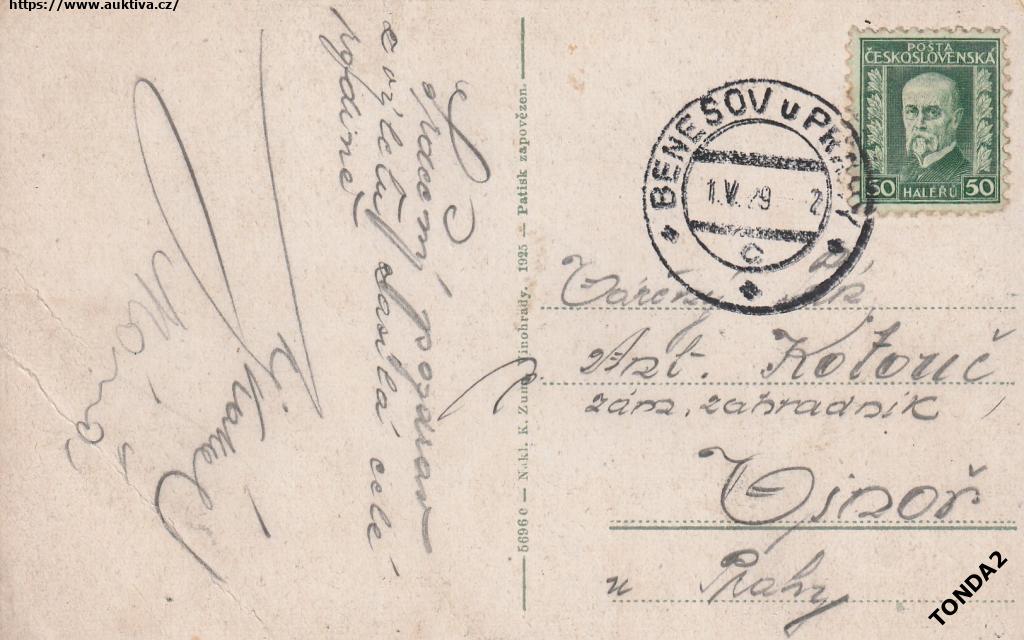 https://www.auktiva.cz/
Srdečný pozdrav
z výletu zasílá celé
rodině
5696 c — Nakl. K. Zum Vinohrady. 1925 — Patisk zapovězen.
POŠTA
ČESKOSLOVENSKA
50 HALÉŘŮ 50
BENEŠOV u PRAHY
1.V.29 - 2
c
Vážený pán
Ant. Kotouč
zám. zahradník
Vinoř
u Prahy
TONDA2